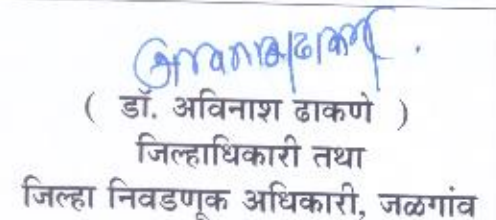 ( डॉ. अविनाश ढाकणे )
जिल्हाधिकारी तथा
जिल्हा निवडणूक अधिकारी, जळगांव